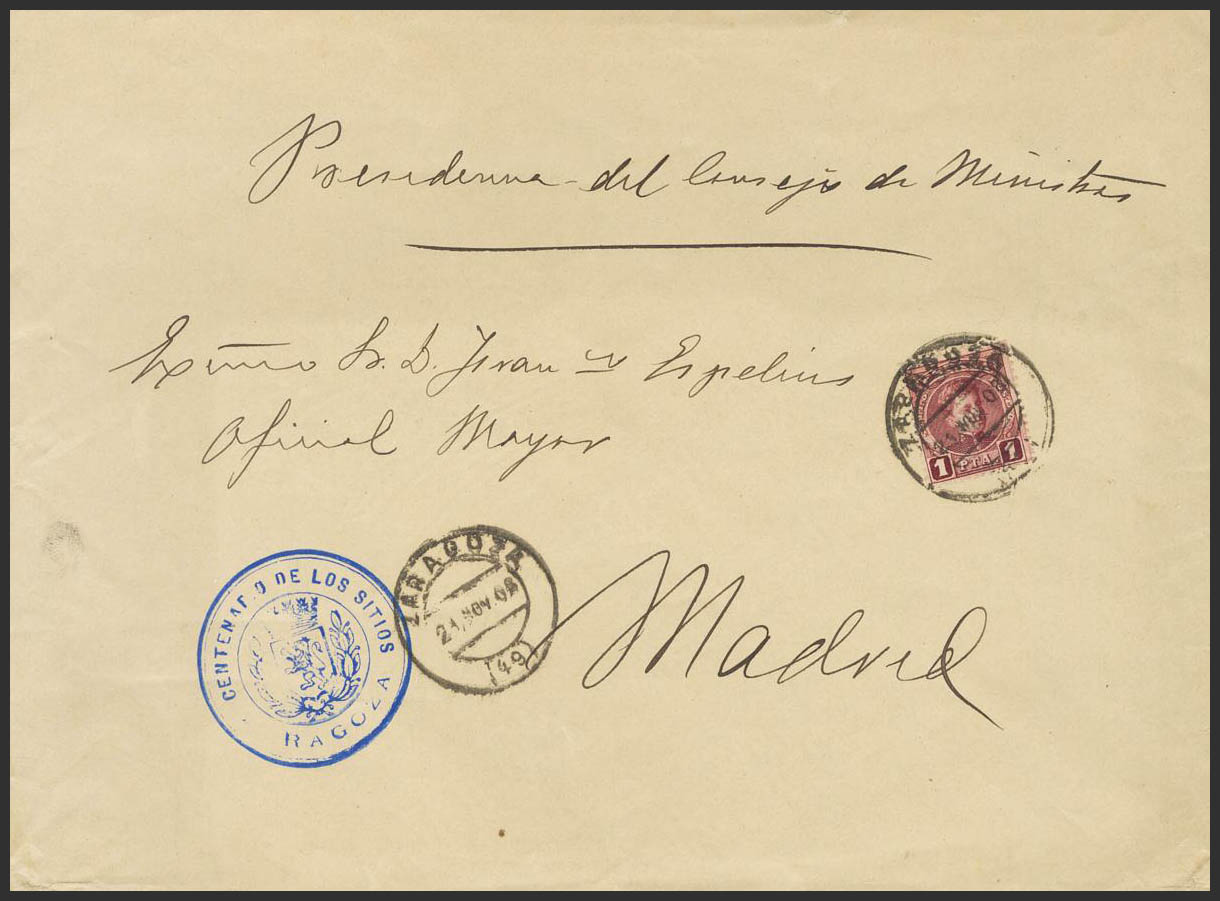 Presidencia del Consejo de Ministros
Excmo Sr. D. Juan Espelius
Oficial Mayor
Madrid
ZARAGOZA
21 NOV 08
1 PTA 1
ZARAGOZA
21 NOV. 08
(49)
CENTENARIO DE LOS SITIOS
RAGOZA